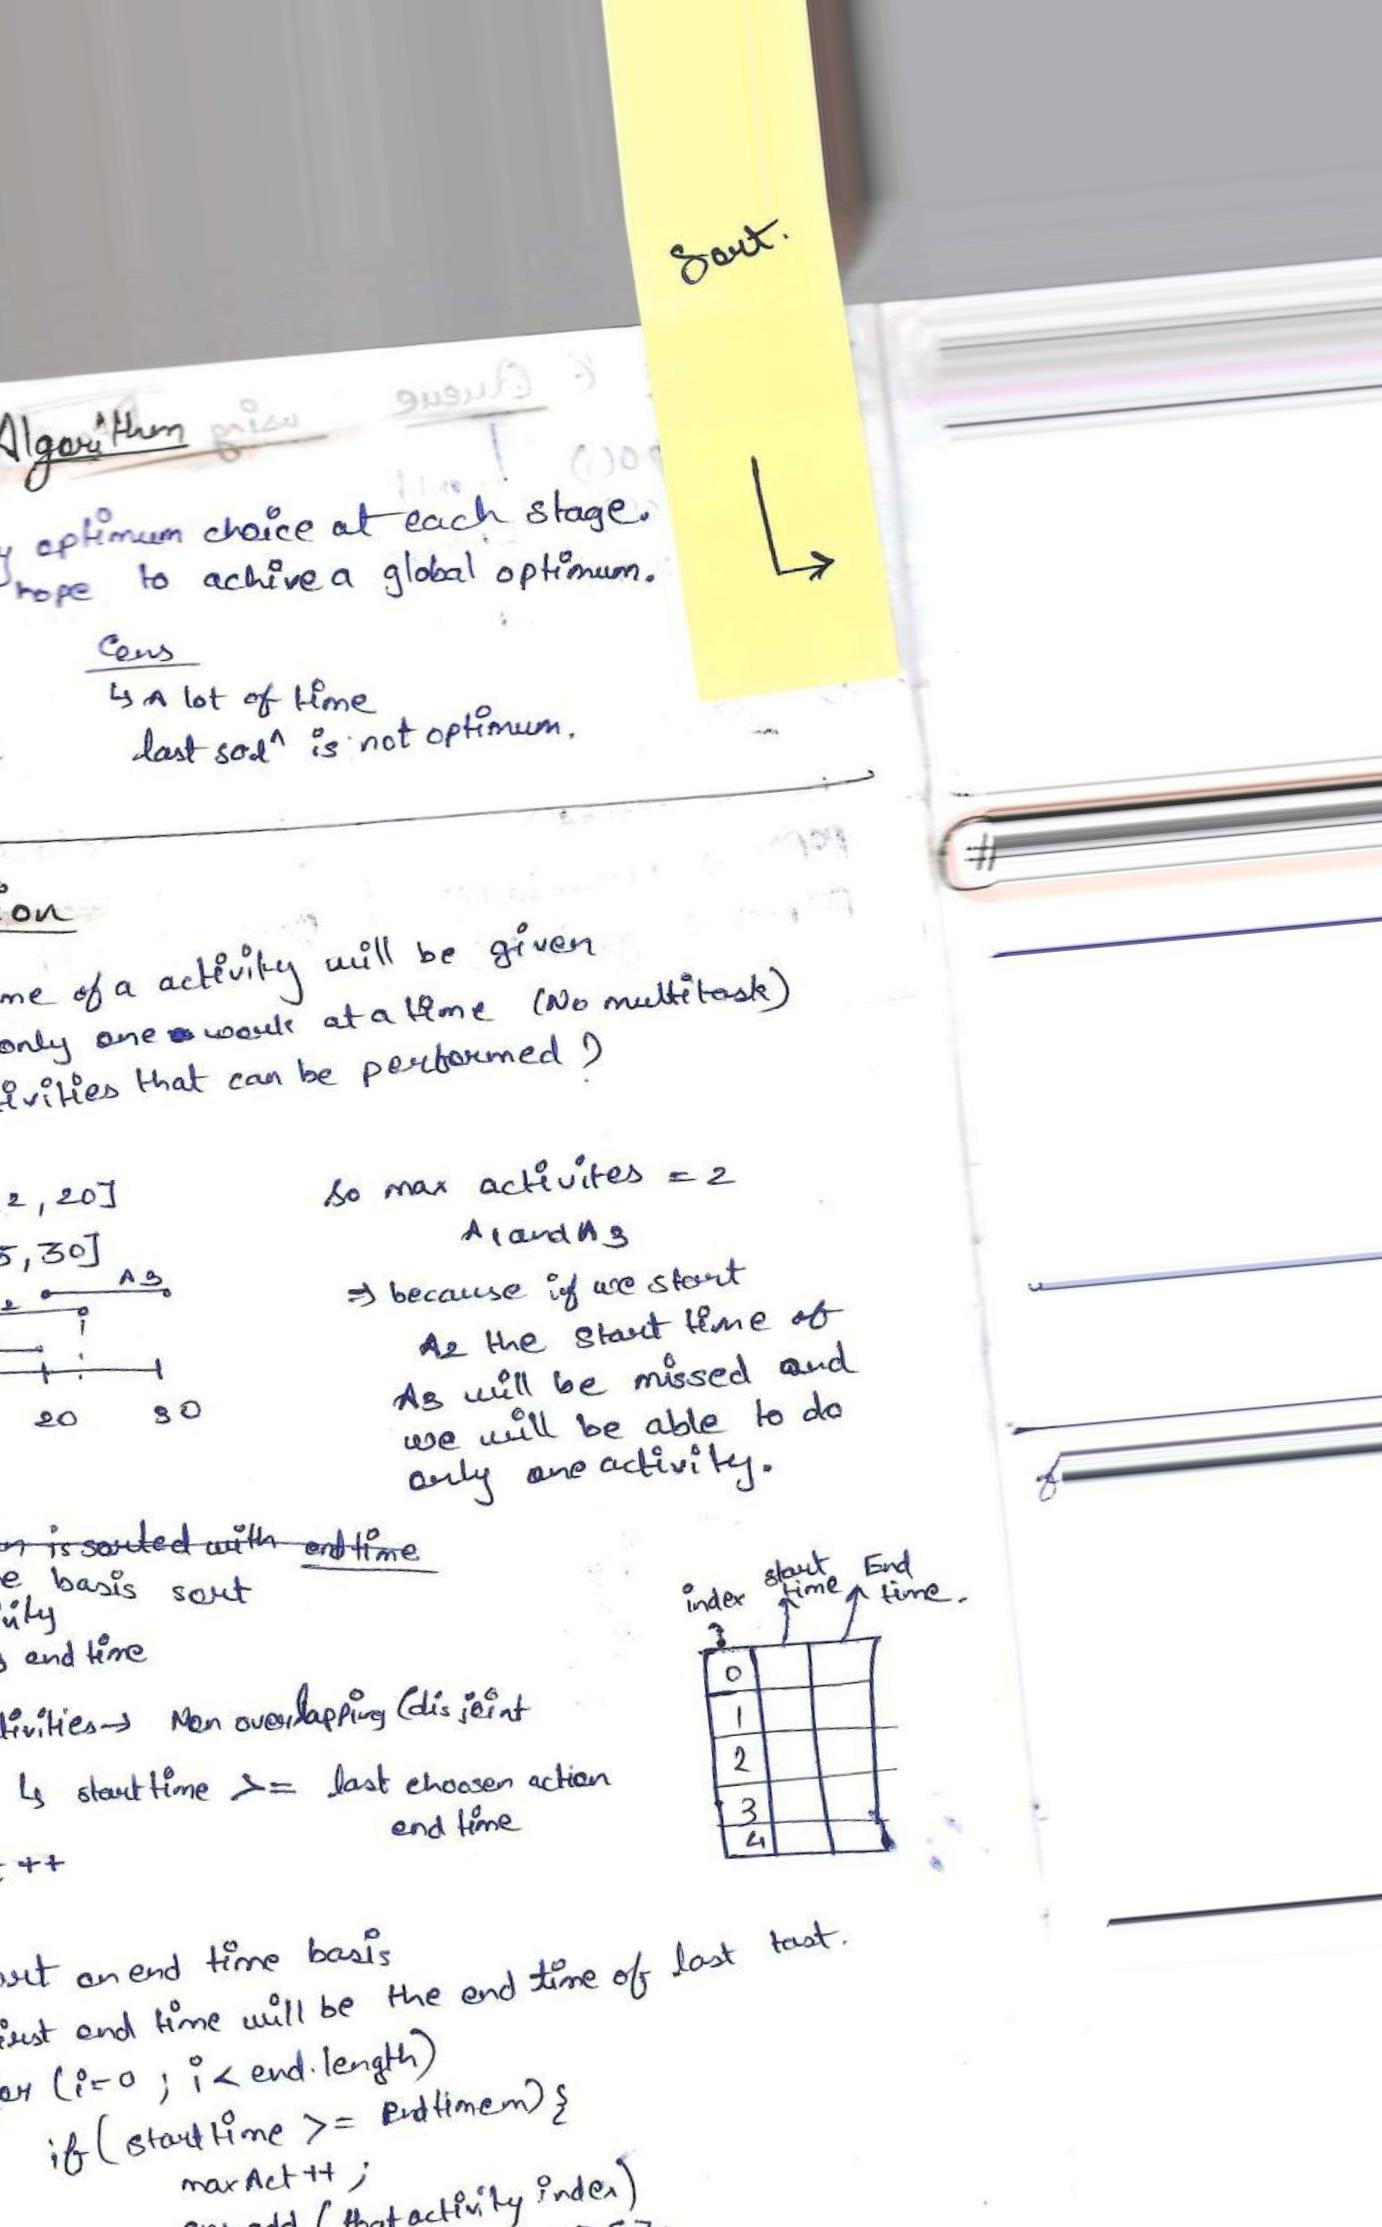 Sort.
Algorithm
optimum choice at each stage.
hope to achive a global optimum.
Cons
↳ A lot of time
last sol^n is not optimum.
#
on
me of a activity will be given
only one work at a time (No multitask)
ivities that can be performed ?
2, 20]
5, 30]
So max activites = 2
A1 and A3
A3
2
20 30
⇒ because if we start
A2 the start time of
A3 will be missed and
we will be able to do
only one activity.
is sorted with end time
e basis sort
vity
end time
index start time End time.
0
1
2
3
4
tivities → Non overlapping (disjoint
↳ start time >= last choosen action
end time
++
ort on end time basis
first end time will be the end time of last tast.
for (i=0 ; i < end.length)
if (start time >= End timem) {
maxAct ++ ;
add (that activity index)